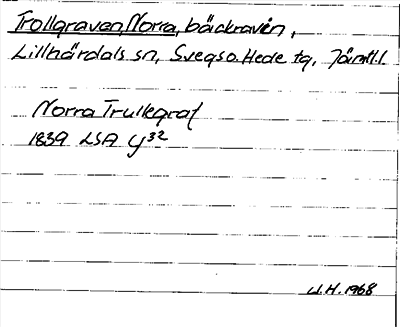 Trollgraven, Norra, bäckravin,
Lillhärdals sn, Svegs o. Hede tg, Jämtl.l.
Norra Trullegraf
1839 LSA y³²
J.H. 1968